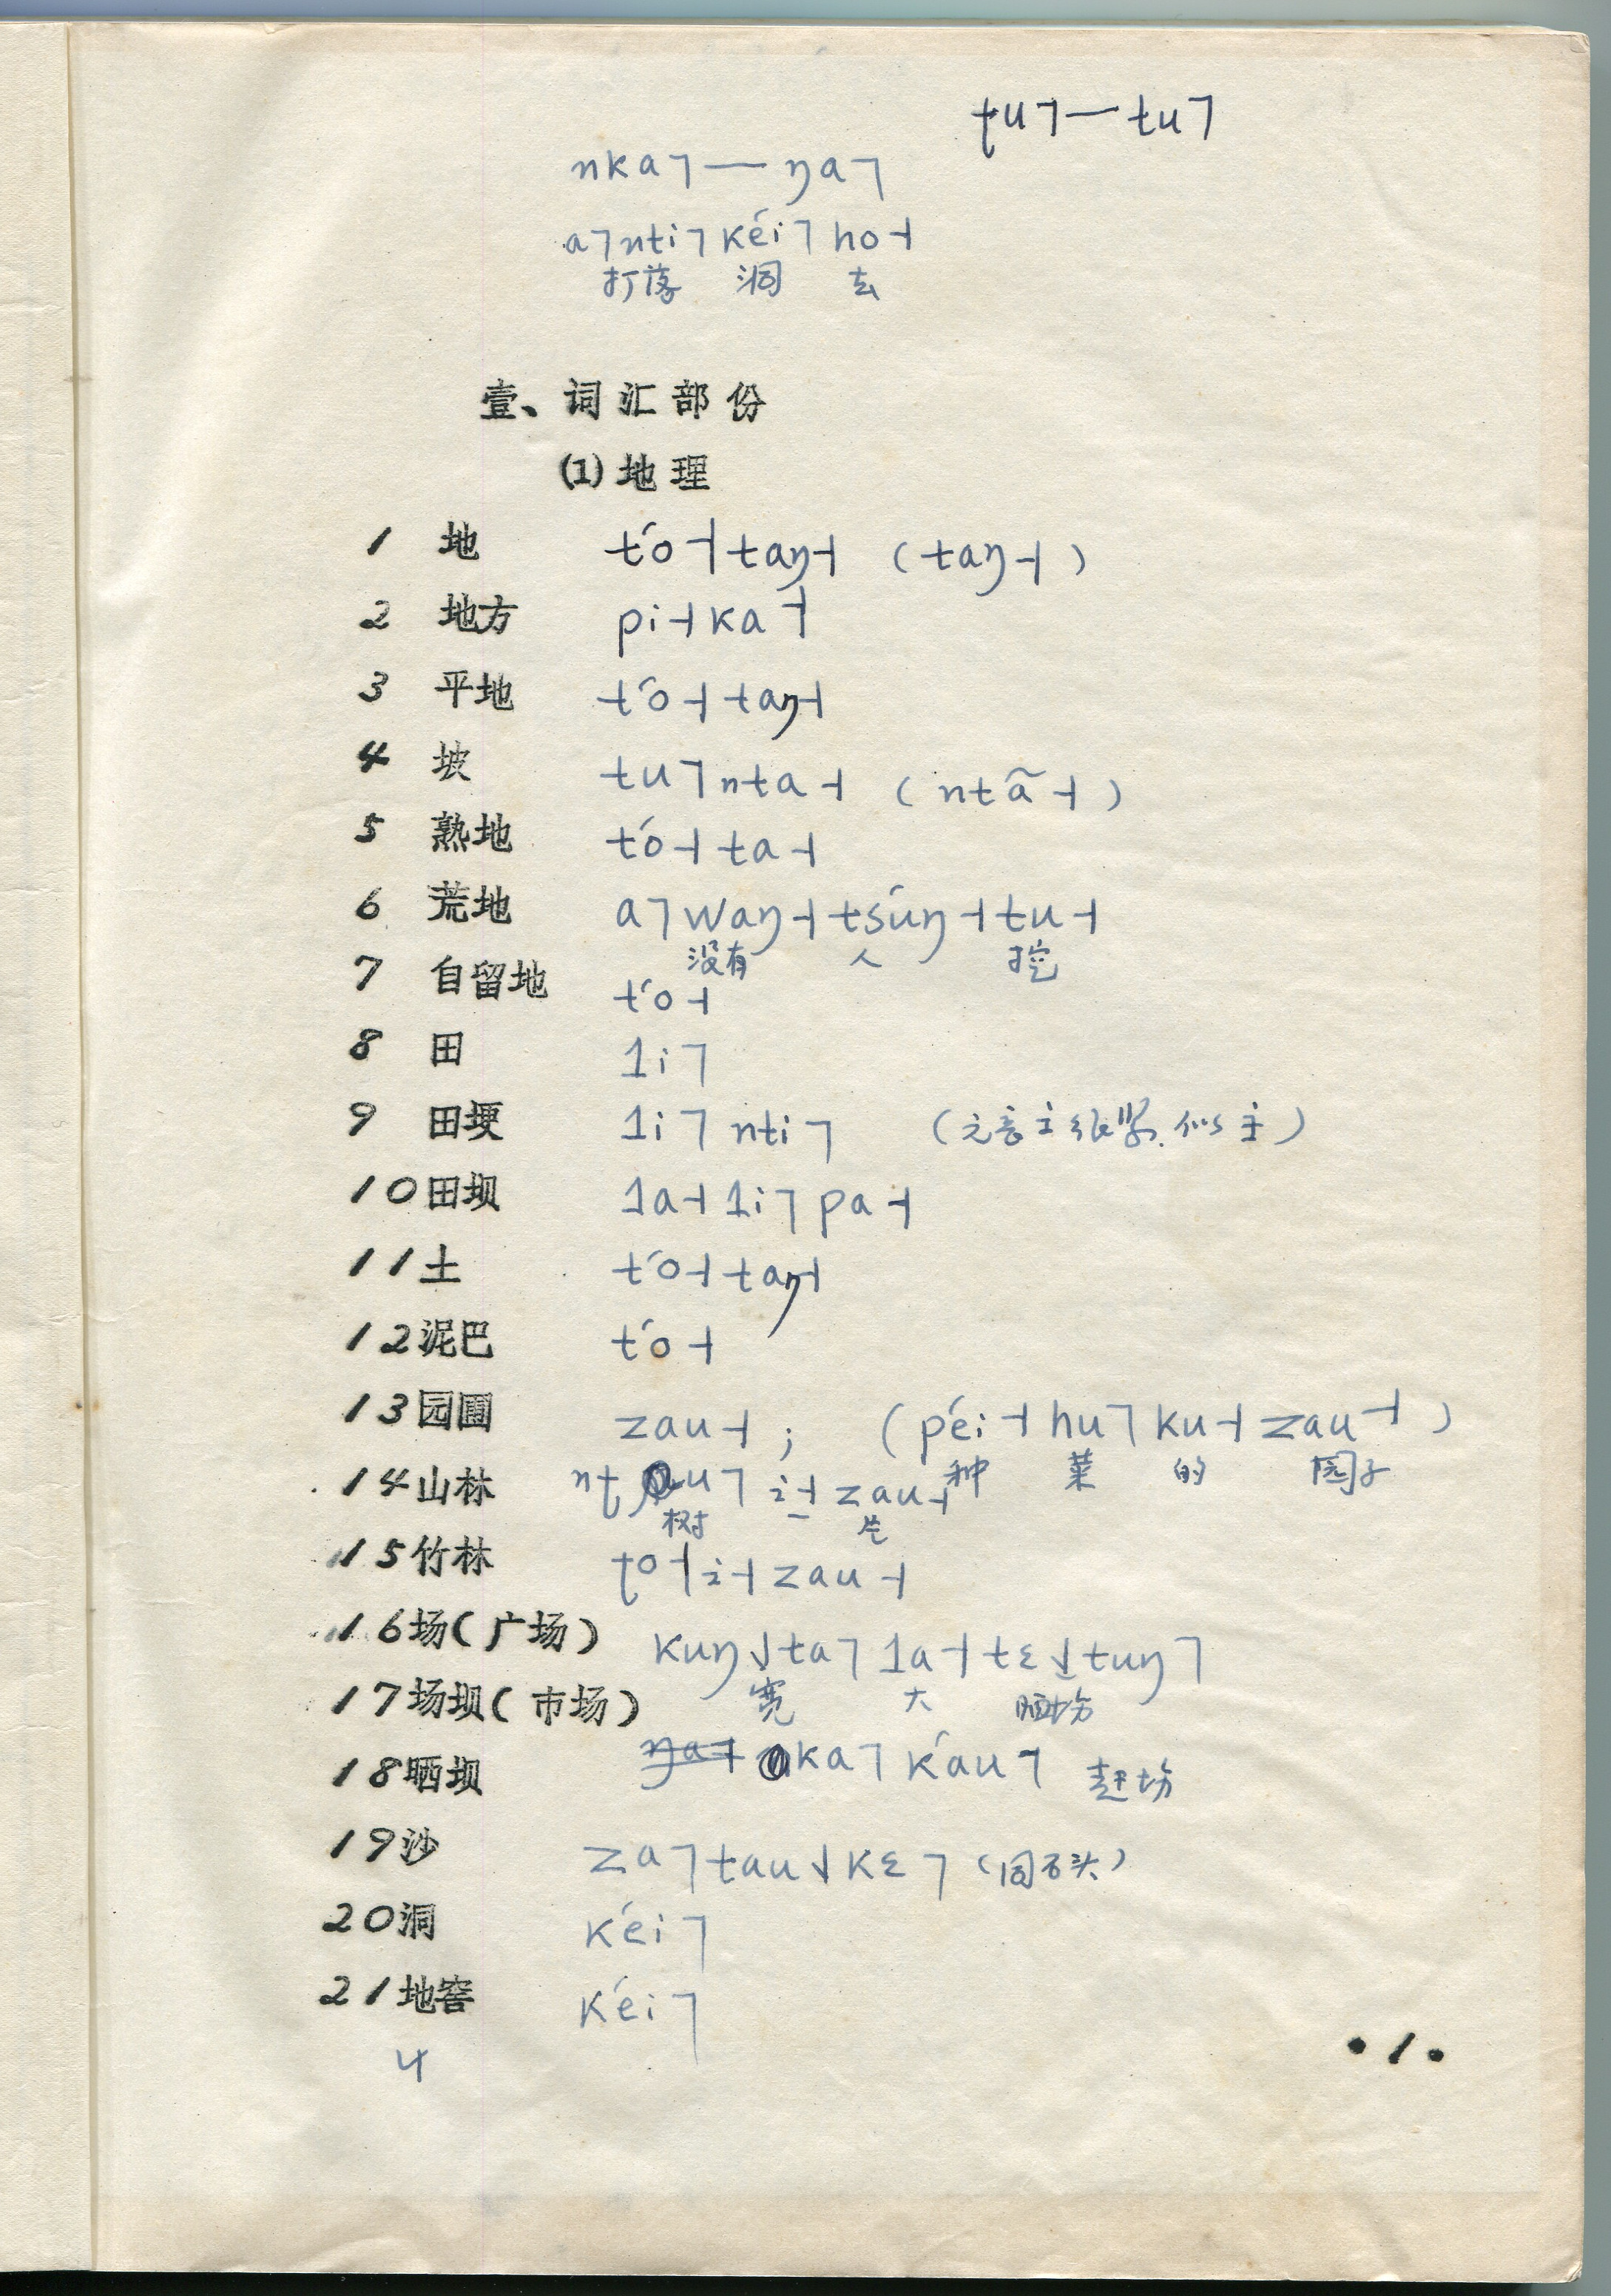 ʈu˥ — tu˥
nka˥ — ŋa˥
a˥nti˥ kʻei˥ ho˧
打落 洞 去
壹、词汇部份
(1)地理
1 地 tʻo˧taŋ˧ (taŋ˧)
2 地方 pi˧ka˦
3 平地 tʻo˧taŋ˧
4 坡 tu˥nta˧ (ntã˧)
5 熟地 tʻo˧ta˧
6 荒地 a˥waŋ˧tsʻuŋ˧tu˧
没有 人 挖
7 自留地 tʻo˧
8 田 li˥
9 田埂 li˥nti˥
10 田坝 la˧li˥pa˧
11 土 tʻo˧taŋ˧
12 泥巴 tʻo˧
13 园圃 zau˧; (pʻei˧hu˥ku˧zau˦)
种 菜 的 园子
14 山林 nʈau˥ i˧ zau˧
树 一 片
15 竹林 ʈo˦i˧zau˧
16 场(广场) kuŋ˨ta˥la˧tɛ˨tuŋ˥
宽 大 晒场
17 场坝(市场)
ka˥kʻau˥ 赶场
18 晒坝
19 沙 za˥tau˨kɛ˥ (同石头)
20 洞 kʻei˥
21 地窖 kʻei˥
4
·1·